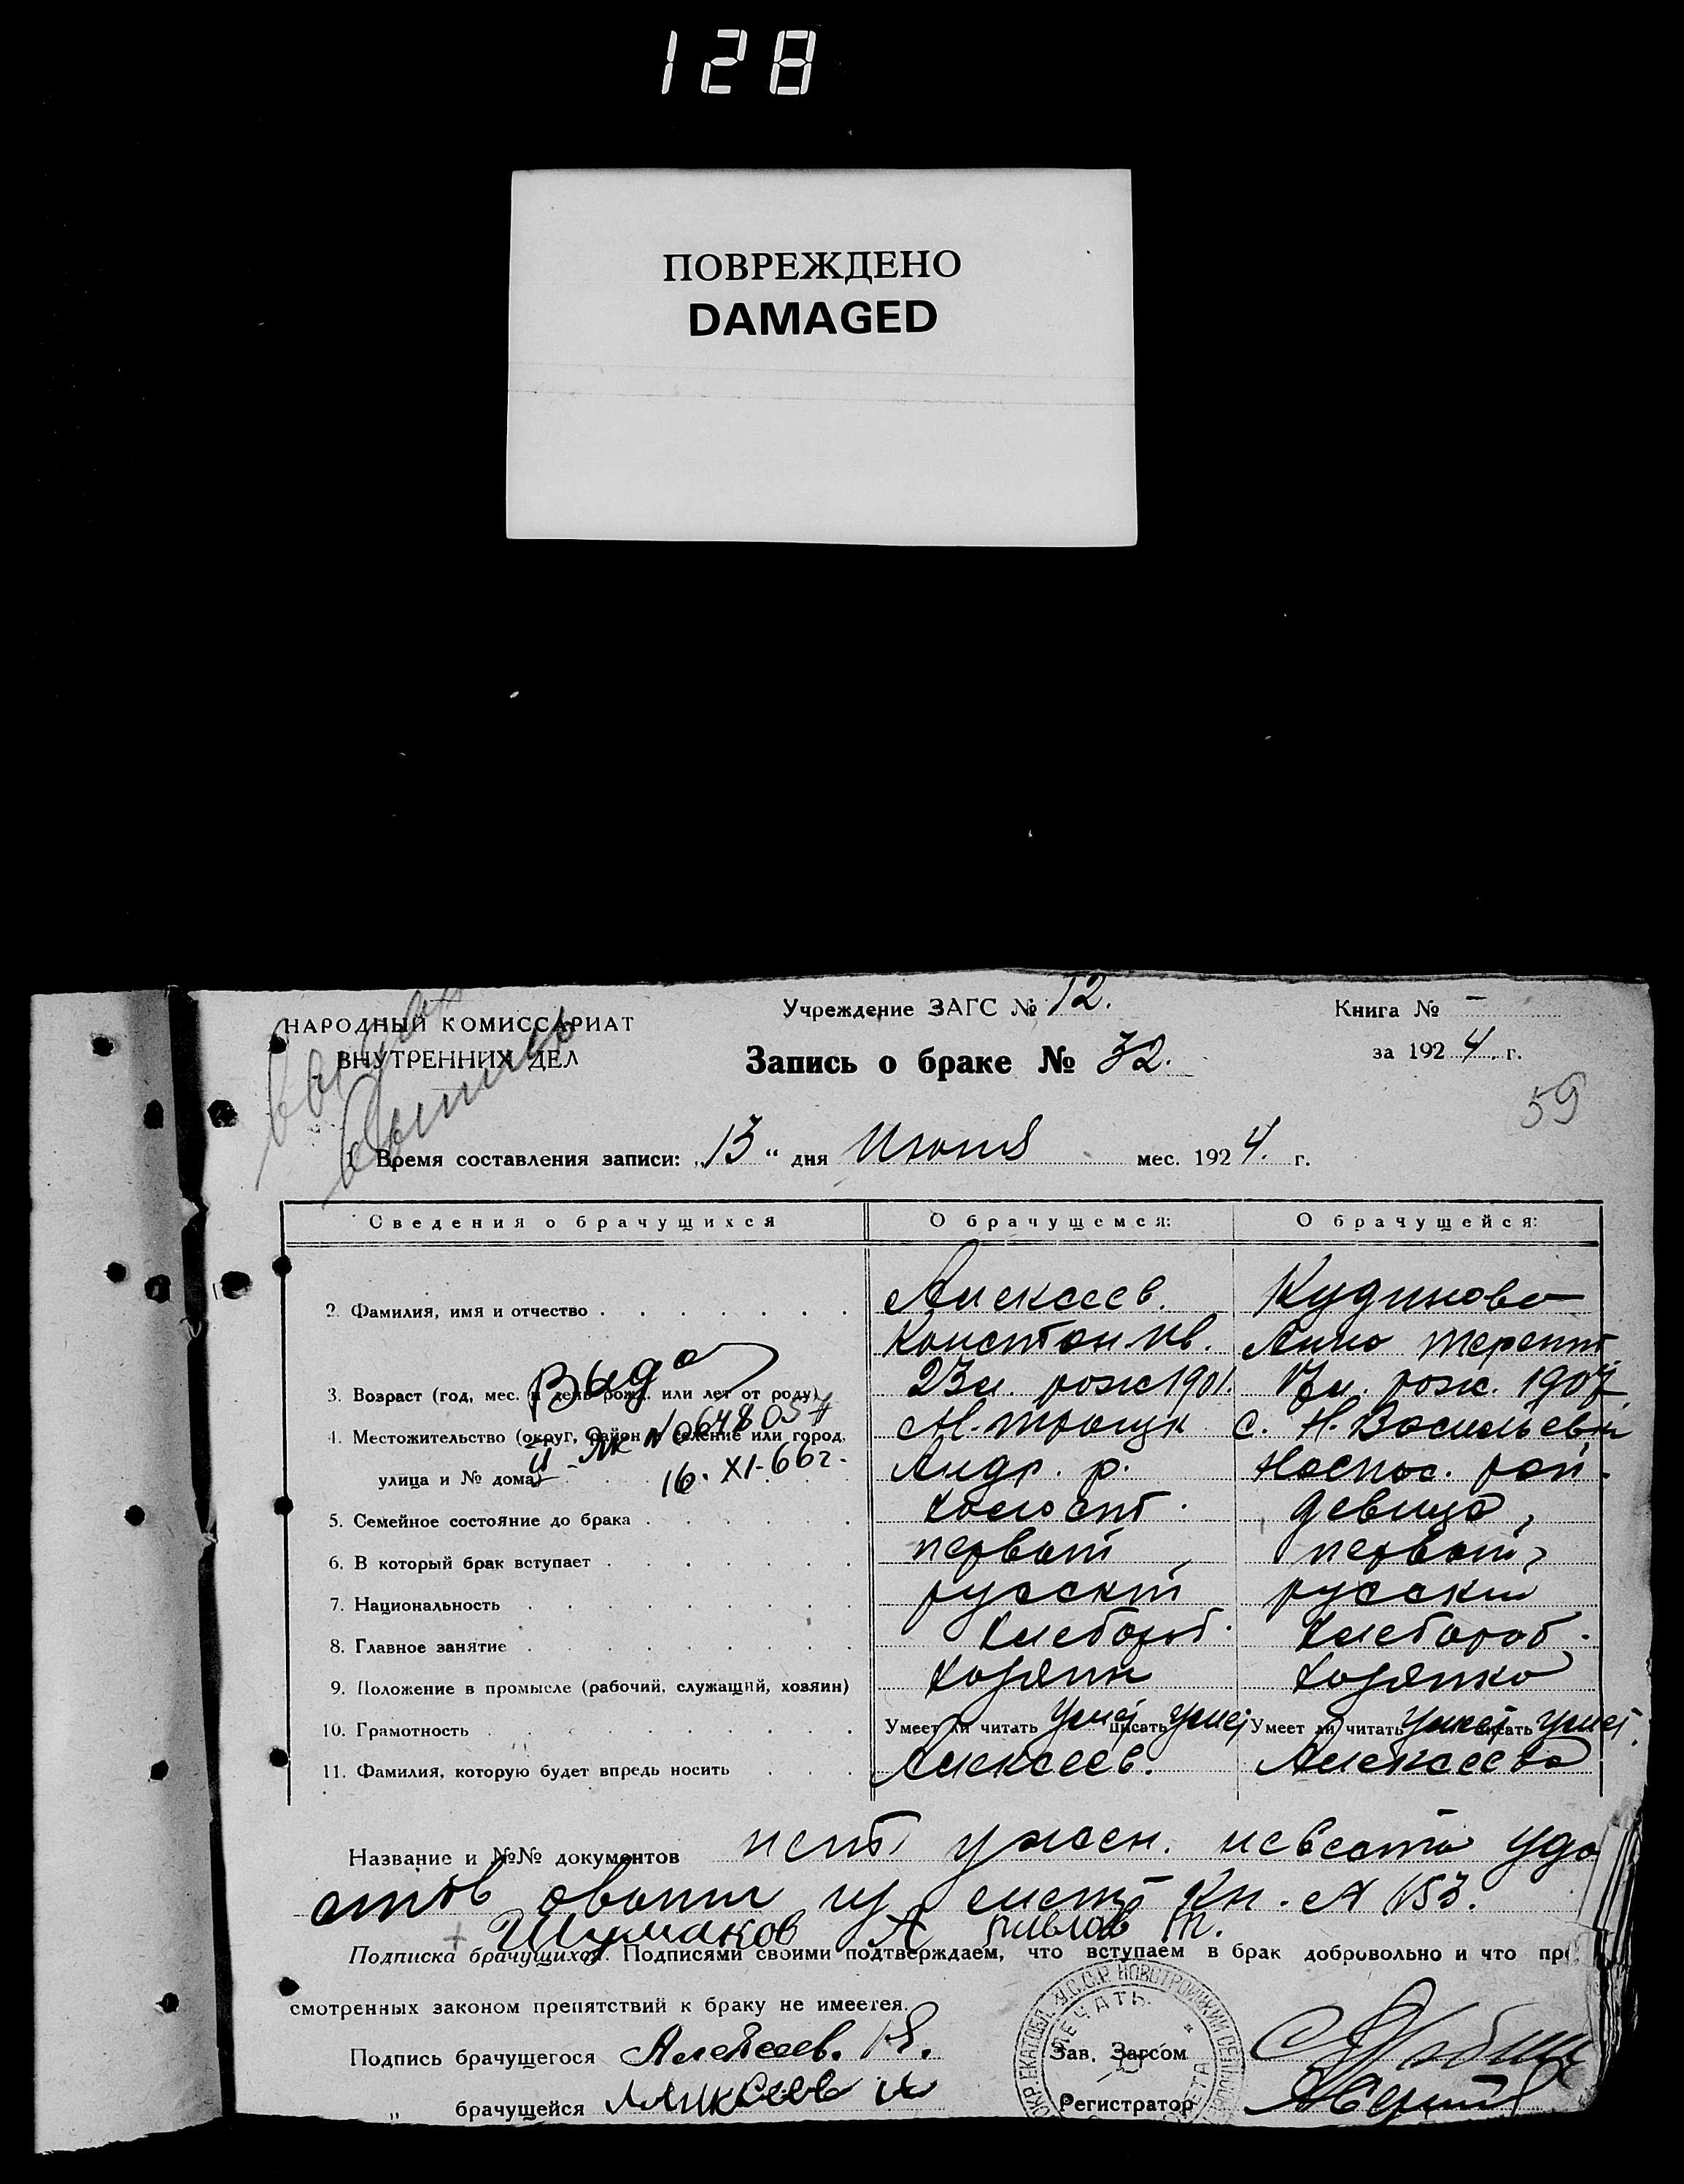 128
ПОВРЕЖДЕНО
DAMAGED
НАРОДНЫЙ КОМИССАРИАТ
ВНУТРЕННИХ ДЕЛ
Учреждение ЗАГС № 12.
Книга № —
Запись о браке № 32.
за 1924. г.
59
1. Время составления записи: „13“ дня Июня мес. 1924. г.
Сведения о брачущихся О брачущемся: О брачущейся:
2. Фамилия, имя и отчество Алексеев. Кудинова
Констан. Ив. Анна Терент
3. Возраст (год, мес. и день рожд. или лет от роду) 23 л. рож 1901. 17 л. рож. 1907
4. Местожительство (округ, район и селение или город, с. Н. Васильевка
улица и № дома) Андр. р. рай.
16. XI-66 г.
5. Семейное состояние до брака холост. девица,
6. В который брак вступает первый первый,
7. Национальность русский русский
8. Главное занятие хлебороб. хлебороб.
9. Положение в промысле (рабочий, служащий, хозяин) хозяин хозяйка
10. Грамотность Умеет ли читать Умеет писать Умеет Умеет ли читать Умеет писать Умеет
11. Фамилия, которую будет впредь носить Алексеев. Алексеева
Название и №№ документов невеста удо
Кн. № 153.
Шумаков А Павлов Т.
Подписка брачущихся. Подписями своими подтверждаем, что вступаем в брак добровольно и что пре
смотренных законом препятствий к браку не имеется.
Подпись брачущегося Алексеев. К.
Зав. Загсом
„ брачущейся
Регистратор
ПЕЧАТЬ